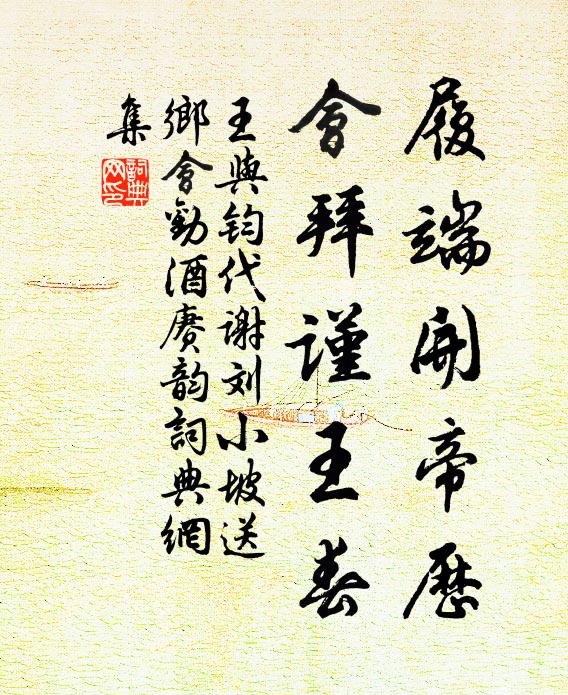 履端開帝歷
會拜謹王春
王與鈞代谢刘小坡送
鄉會勸酒賡韵詞典網
集
詞典
网印